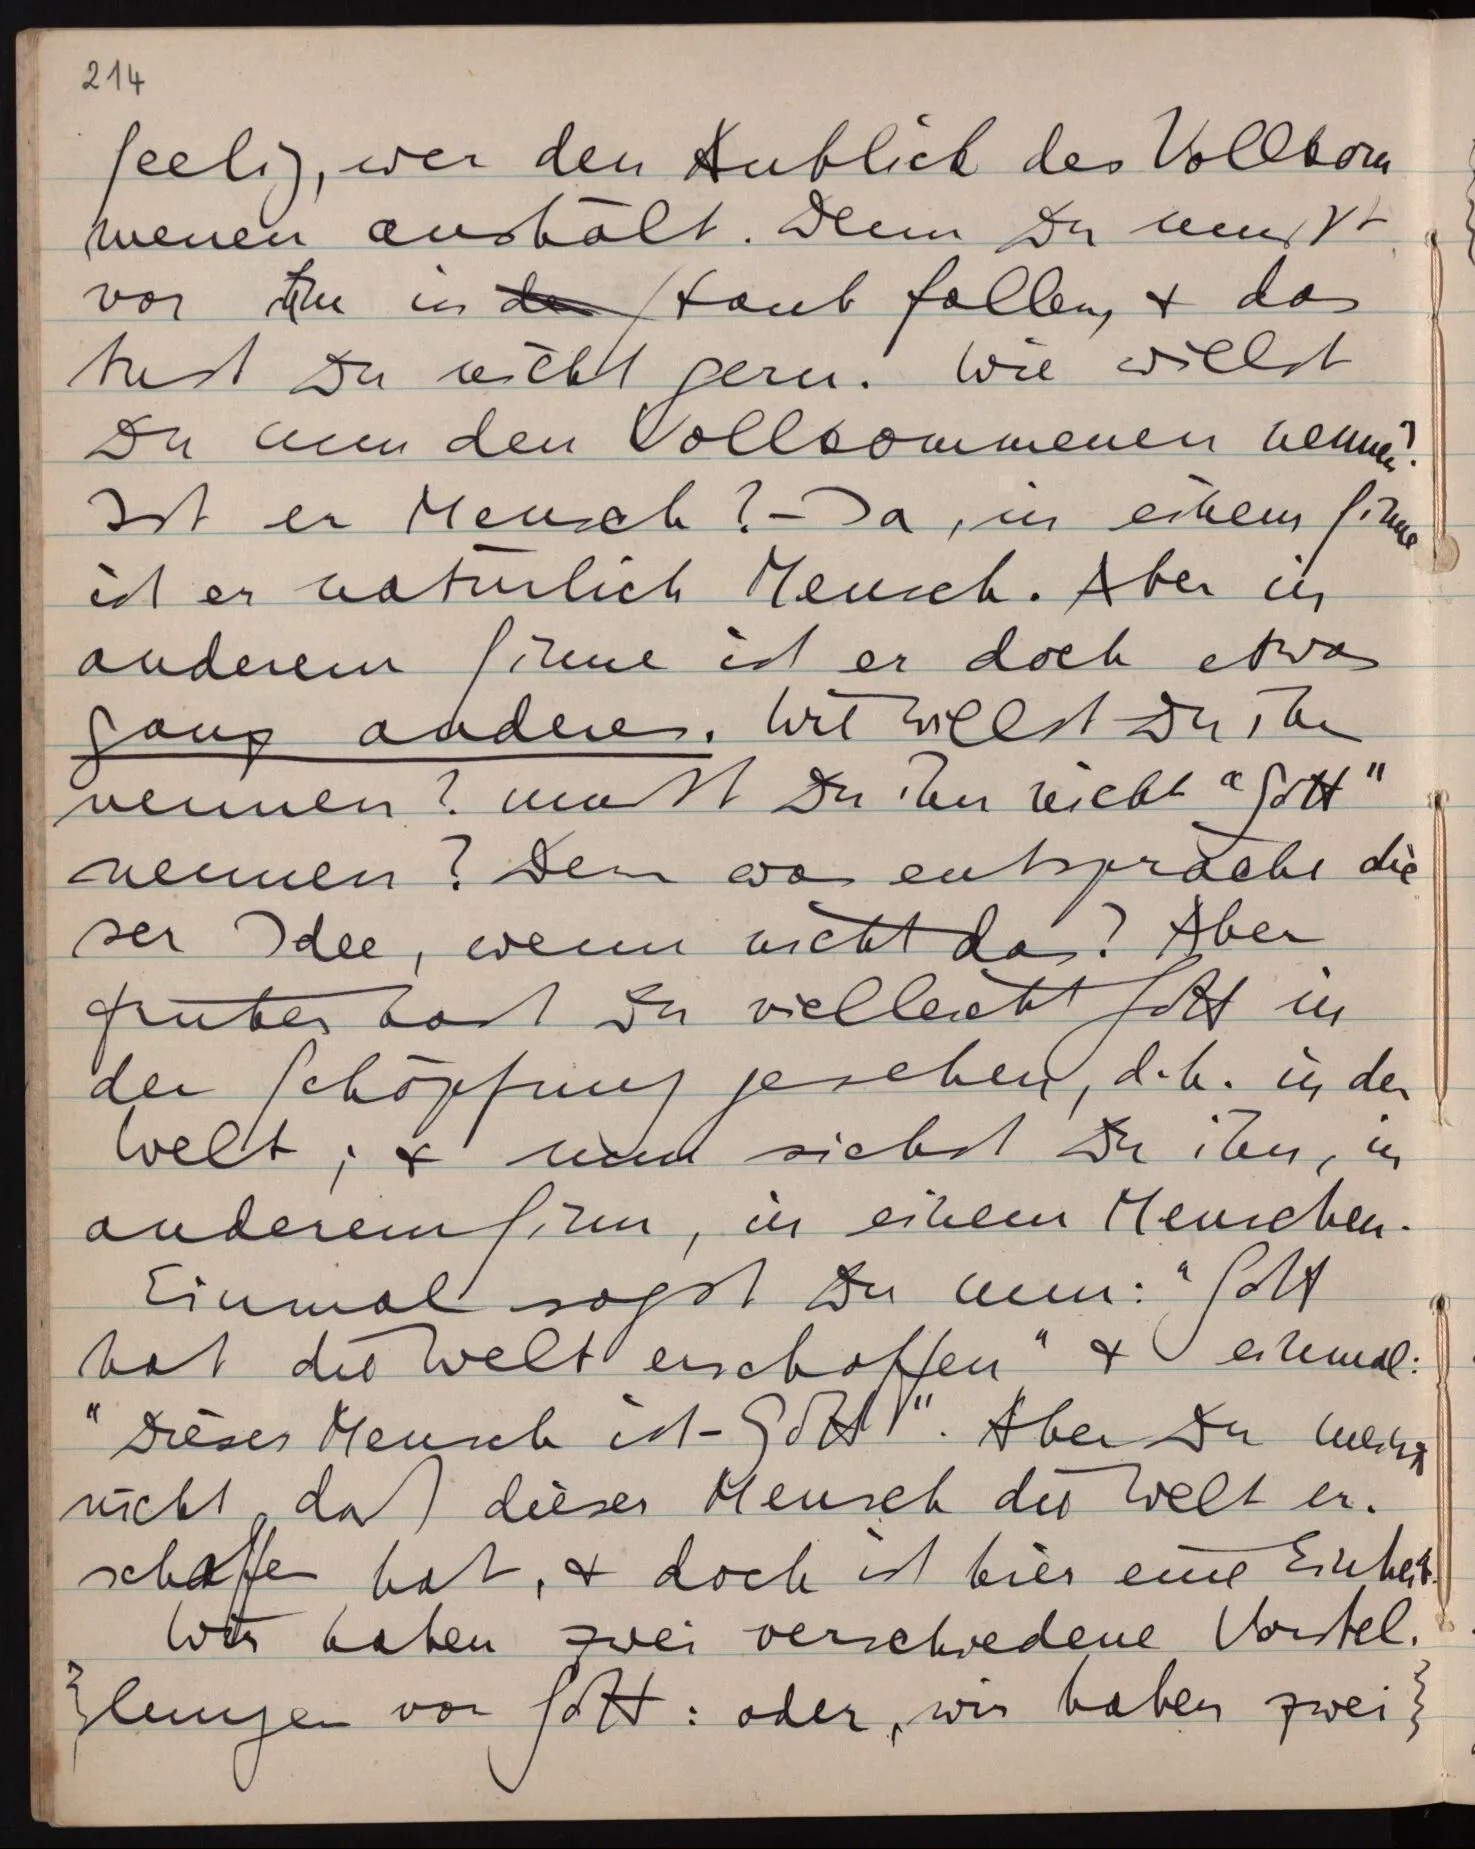 214
Seelig, wer den Anblick des Vollkom
menen aushält. Denn Du mußt
vor ihm in den Staub fallen, & das
tust Du nicht gern. Wie willst
Du nun den Vollkommenen nennen?
Ist er Mensch? – Ja, in einem Sinne
ist er natürlich Mensch. Aber in
anderem Sinne ist er doch etwas
ganz anderes. Wie willst Du ihn
nennen? mußt Du ihn nicht "Gott"
nennen? Denn was entspräche die
ser Idee, wenn nicht das? Aber
früher hast Du vielleicht Gott in
der Schöpfung gesehen, d.h. in der
Welt; & nun siehst Du ihn, in
anderem Sinn, in einem Menschen.
Einmal sagst Du nun: "Gott
hat die Welt erschaffen" & einmal:
"Dieser Mensch ist – Gott". Aber Du meinst
nicht, daß dieser Mensch die Welt er-
schaffen hat, & doch ist hier eine Einheit.
Wir haben zwei verschiedene Vorstel-
lungen von Gott: oder, wir haben zwei